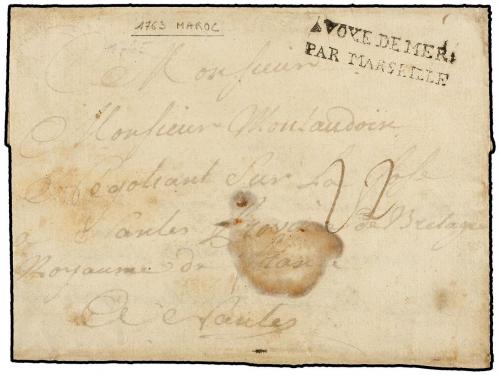 1763 MAROC
A VOYE DE MER
PAR MARSEILLE
Monsieur
Monsieur Montaudoin
Negotiant Sur La
Nantes de Bretagne
Royaume de
A Nantes
22